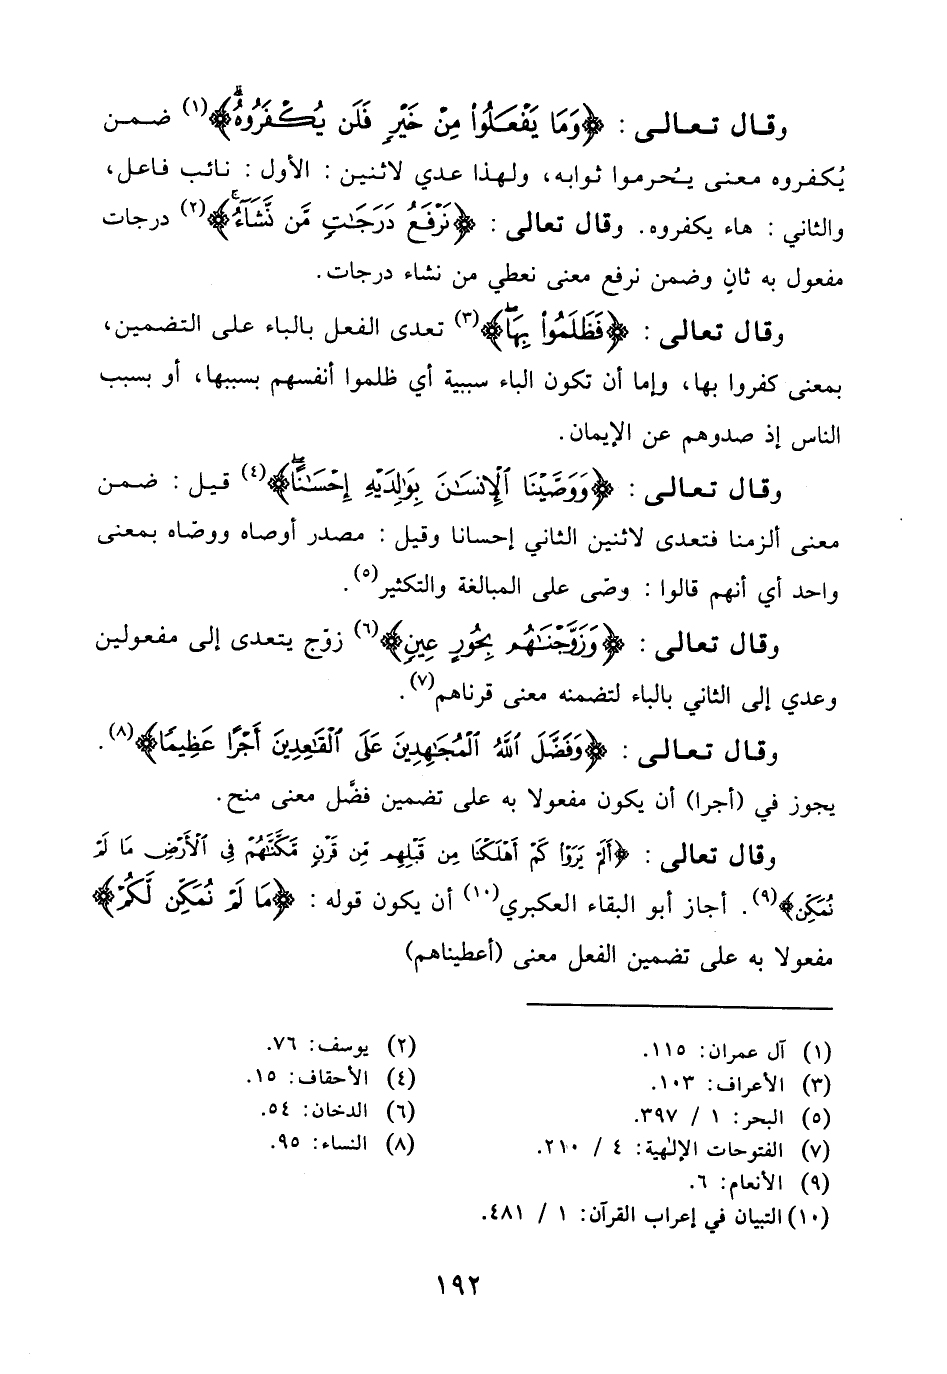 وقال تعالى : ﴿وَمَا يَفْعَلُوا۟ مِنْ خَيْرٍ فَلَن يُكْفَرُوهُ ۗ﴾(١) ضمن
يُكفروه معنى يُحرموا ثوابه، ولهذا عدي لاثنين : الأول : نائب فاعل،
والثاني : هاء يكفروه. وقال تعالى : ﴿نَرْفَعُ دَرَجَٰتٍ مَّن نَّشَآءُ ۚ﴾(٢) درجات
مفعول به ثانٍ وضمن نرفع معنى نعطي من نشاء درجات.
وقال تعالى : ﴿فَظَلَمُوا۟ بِهَا ۖ﴾(٣) تعدى الفعل بالباء على التضمين،
بمعنى كفروا بها، وإما أن تكون الباء سببية أي ظلموا أنفسهم بسببها، أو بسبب
الناس إذ صدوهم عن الإيمان.
وقال تعالى : ﴿وَوَصَّيْنَا ٱلْإِنسَٰنَ بِوَٰلِدَيْهِ إِحْسَٰنًا ۖ﴾(٤) قيل : ضمن
معنى ألزمنا فتعدى لاثنين الثاني إحسانا وقيل : مصدر أوصاه ووصّاه بمعنى
واحد أي أنهم قالوا : وصّى على المبالغة والتكثير(٥).
وقال تعالى : ﴿وَزَوَّجْنَٰهُم بِحُورٍ عِينٍ﴾(٦) زوّج يتعدى إلى مفعولين
وعدي إلى الثاني بالباء لتضمنه معنى قرناهم(٧).
وقال تعالى : ﴿وَفَضَّلَ ٱللَّهُ ٱلْمُجَٰهِدِينَ عَلَى ٱلْقَٰعِدِينَ أَجْرًا عَظِيمًا﴾(٨).
يجوز في (أجرا) أن يكون مفعولا به على تضمين فضَّل معنى منح.
وقال تعالى : ﴿أَلَمْ يَرَوْا۟ كَمْ أَهْلَكْنَا مِن قَبْلِهِم مِّن قَرْنٍ مَّكَّنَّٰهُمْ فِى ٱلْأَرْضِ مَا لَمْ
نُمَكِّن﴾(٩). أجاز أبو البقاء العكبري(١٠) أن يكون قوله : ﴿مَا لَمْ نُمَكِّن لَّكُمْ﴾
مفعولا به على تضمين الفعل معنى (أعطيناهم)
(١) آل عمران: ١١٥.
(٢) يوسف: ٧٦.
(٣) الأعراف: ١٠٣.
(٤) الأحقاف: ١٥.
(٥) البحر: ١ / ٣٩٧.
(٦) الدخان: ٥٤.
(٧) الفتوحات الإلٰهية: ٤ / ٢١٠.
(٨) النساء: ٩٥.
(٩) الأنعام: ٦.
(١٠) التبيان في إعراب القرآن: ١ / ٤٨١.
١٩٢